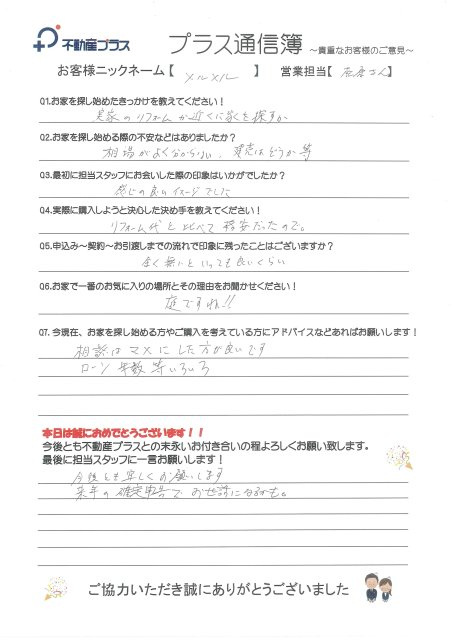 不動産プラス プラス通信簿 ～貴重なお客様のご意見～
お客様ニックネーム【 メルメル 】 営業担当【 さん】
Q1.お家を探し始めたきっかけを教えてください！
実家のリフォームか近くに家を探すか
Q2.お家を探し始める際の不安などはありましたか？
相場がよく分からない、買売はどうか等
Q3.最初に担当スタッフにお会いした際の印象はいかがでしたか？
感じの良いイメージでした
Q4.実際に購入しようと決心した決め手を教えてください！
リフォーム代と比べて格安だったので。
Q5.申込み～契約～お引渡しまでの流れで印象に残ったことはございますか？
全く無いといっても良いくらい
Q6.お家で一番のお気に入りの場所とその理由をお聞かせください！
庭ですね!!
Q7.今現在、お家を探し始める方やご購入を考えている方にアドバイスなどあればお願いします！
相談はマメにした方が良いです
ローン 年数 等いろいろ
本日は誠におめでとうございます！！
今後とも不動産プラスとの末永いお付き合いの程よろしくお願い致します。
最後に担当スタッフに一言お願いします！
今後とも宜しくお願いします
来年の確定申告でお世話になるかも。
ご協力いただき誠にありがとうございました